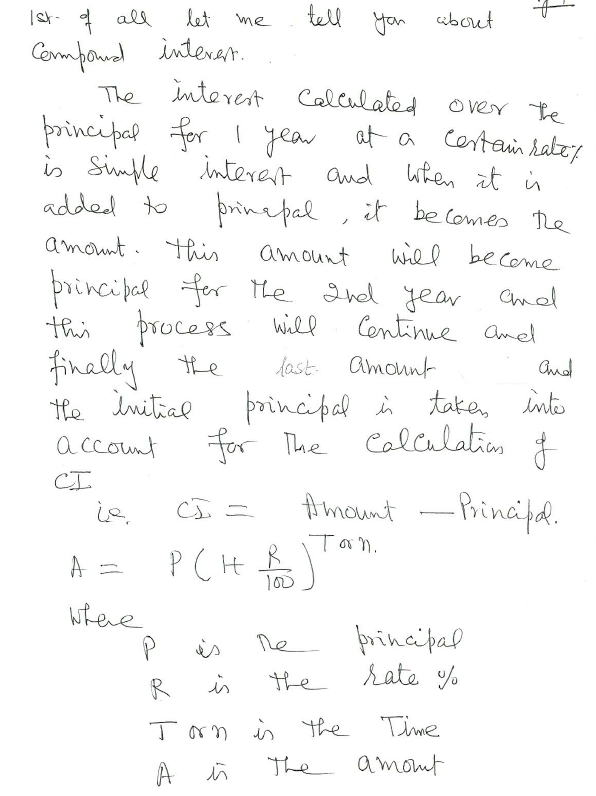 1st. of all let me tell you about
Compound interest.
The interest calculated over the
principal for 1 year at a certain rate%
is simple interest and when it is
added to prinapal, it becomes the
amount. This amount will become
principal for the 2nd year and
this process will Continue and
finally the last amount and
the initial principal is taken into
account for the Calculation of
CI
i.e. CI = Amount — Principal.
A = P(1+ R/100)^T or n.
Where
P is the principal
R is the rate %
T or n is the Time
A is the amount